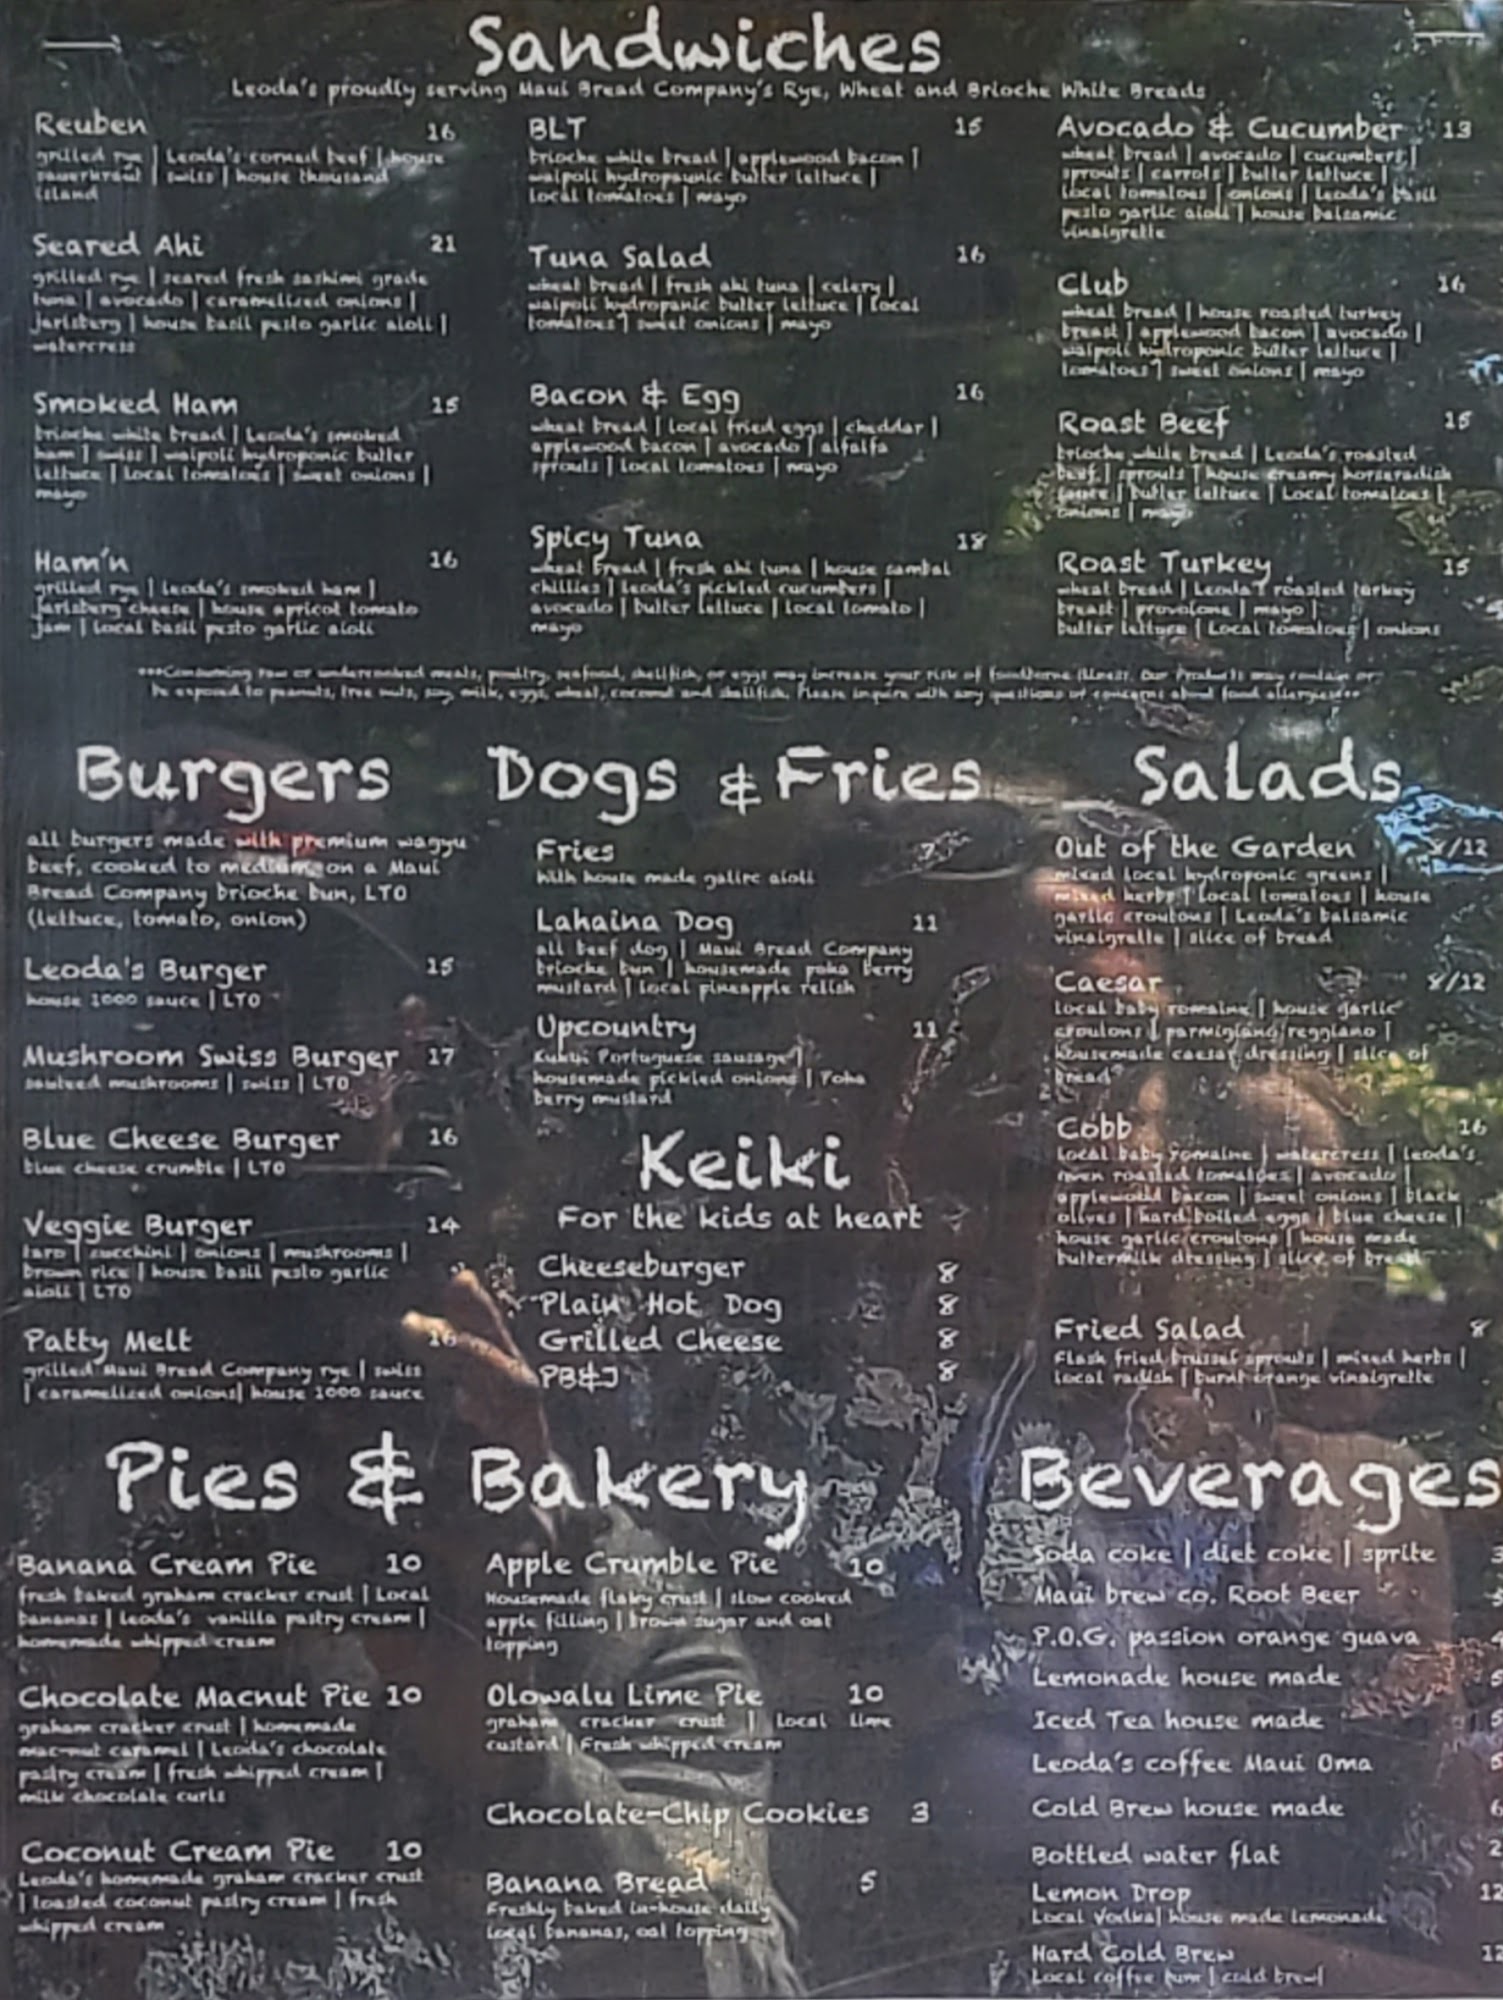 Sandwiches
Leoda's proudly serving Maui Bread Company's Rye, Wheat and Brioche White Breads
Reuben 16
grilled rye | Leoda's corned beef | house
sauerkraut | swiss | house thousand
island
Seared Ahi 21
grilled rye | seared fresh sashimi grade
tuna | avocado | caramelized onions |
jarlsberg | house basil pesto garlic aioli |
watercress
Smoked Ham 15
brioche white bread | Leoda's smoked
ham | swiss | waipoli hydroponic butter
lettuce | local tomatoes | sweet onions |
mayo
Ham'n 16
grilled rye | Leoda's smoked ham |
Jarlsberg cheese | house apricot tomato
jam | local basil pesto garlic aioli
BLT 15
brioche white bread | applewood bacon |
waipoli hydropaunic butter lettuce |
local tomatoes | mayo
Tuna Salad 16
wheat bread | fresh ahi tuna | celery |
waipoli hydropanic butter lettuce | local
tomatoes | sweet onions | mayo
Bacon & Egg 16
wheat bread | local fried eggs | cheddar |
applewood bacon | avocado | alfalfa
sprouts | local tomatoes | mayo
Spicy Tuna 18
wheat bread | fresh ahi tuna | house sambal
chillies | Leoda's pickled cucumbers |
avocado | butter lettuce | local tomato |
mayo
Avocado & Cucumber 13
wheat bread | avocado | cucumbers |
sprouts | carrots | butter lettuce |
local tomatoes | onions | Leoda's basil
pesto garlic aioli | house balsamic
vinaigrette
Club 16
wheat bread | house roasted turkey
breast | applewood bacon | avocado |
waipoli hydroponic butter lettuce |
tomatoes | sweet onions | mayo
Roast Beef 15
brioche white bread | Leoda's roasted
beef | sprouts | house creamy horseradish
sauce | butter lettuce | Local tomatoes |
onions | mayo
Roast Turkey 15
wheat bread | Leoda's roasted turkey
breast | provolone | mayo |
butter lettuce | Local tomatoes | onions
***Consuming raw or undercooked meats, poultry, seafood, shellfish, or eggs may increase your risk of foodborne illness. Our Products may contain or
be exposed to peanuts, tree nuts, soy, milk, eggs, wheat, coconut and shellfish. Please inquire with any questions or concerns about food allergies***
Burgers
all burgers made with premium wagyu
beef, cooked to medium on a Maui
Bread Company brioche bun, LTO
(lettuce, tomato, onion)
Leoda's Burger 15
house 1000 sauce | LTO
Mushroom Swiss Burger 17
sauteed mushrooms | swiss | LTO
Blue Cheese Burger 16
blue cheese crumble | LTO
Veggie Burger 14
taro | zucchini | onions | mushrooms |
brown rice | house basil pesto garlic
aioli | LTO
Patty Melt 16
grilled Maui Bread Company rye | swiss
| caramelized onions| house 1000 sauce
Dogs & Fries
Fries 7
With house made galirc aioli
Lahaina Dog 11
all beef dog | Maui Bread Company
brioche bun | housemade poha berry
mustard | local pineapple relish
Upcountry 11
Kukui Portuguese sausage |
housemade pickled onions | Poha
berry mustard
Keiki
For the kids at heart
Cheeseburger 8
Plain Hot Dog 8
Grilled Cheese 8
PB&J 8
Salads
Out of the Garden 8/12
mixed local hydroponic greens |
mixed herbs | local tomatoes | house
garlic croutons | Leoda's balsamic
vinaigrette | slice of bread
Caesar 8/12
local baby romaine | house garlic
croutons | parmigiano reggiano |
housemade caesar dressing | slice of
bread
Cobb 16
Local baby romaine | watercress | leoda's
oven roasted tomatoes | avocado |
applewood bacon | sweet onions | black
olives | hard boiled eggs | blue cheese |
house garlic croutons | house made
buttermilk dressing | slice of bread
Fried Salad 8
Flash fried brussel sprouts | mixed herbs |
local radish | burnt orange vinaigrette
Pies & Bakery
Banana Cream Pie 10
fresh baked graham cracker crust | Local
bananas | Leoda's vanilla pastry cream |
homemade whipped cream
Chocolate Macnut Pie 10
graham cracker crust | homemade
mac-nut caramel | Leoda's chocolate
pastry cream | fresh whipped cream |
milk chocolate curls
Coconut Cream Pie 10
Leoda's homemade graham cracker crust
| toasted coconut pastry cream | fresh
whipped cream
Apple Crumble Pie 10
Housemade flaky crust | slow cooked
apple filling | brown sugar and oat
topping
Olowalu Lime Pie 10
graham cracker crust | Local lime
custard | Fresh whipped cream
Chocolate-Chip Cookies 3
Banana Bread 5
Freshly baked in-house daily
Local bananas, oat topping
Beverages
Soda coke | diet coke | sprite 3
Maui brew co. Root Beer
P.O.G. passion orange guava 4
Lemonade house made 5
Iced Tea house made 5
Leoda's coffee Maui Oma 5
Cold Brew house made 6
Bottled water flat 2
Lemon Drop 12
Local Vodka| house made lemonade
Hard Cold Brew 12
Local coffee rum | cold brew|